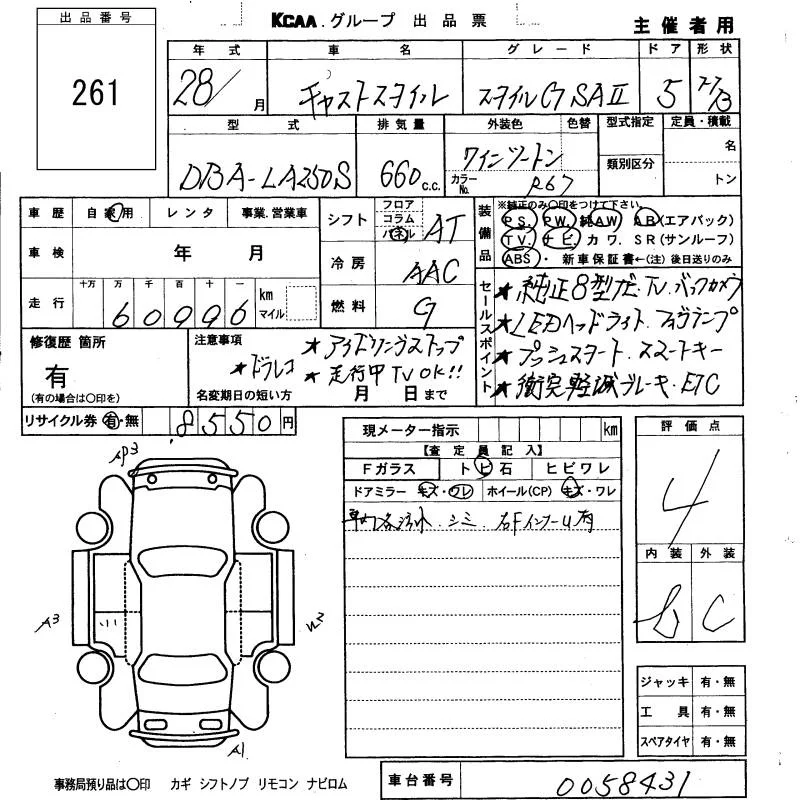 出品番号
261
KCAA.グループ 出品票
主催者用
年式 車名 グレード ドア 形状
28/ 月 キャストスタイル スタイルG SAⅡ 5
型式 排気量 外装色 色替 型式指定 定員・積載
DBA-LA250S 660 c.c. ワインツートン 類別区分 名
カラーNo. R67 トン
車歴 自家用 レンタ 事業.営業車
車検 年 月
走行 十万 万 千 百 十 一 km マイル
60996
シフト フロア コラム パネル AT
冷房 AAC
燃料 G
装備品 ※純正のみ〇印をつけて下さい。
PS. PW. 純AW AB(エアバック)
TV. ナビ. カワ. SR(サンルーフ)
ABS・ 新車保証書←(注)後日送りのみ
セールスポイント
★純正8型ナビ.TV.バックカメラ
★LEDヘッドライト.フォグランプ
★プッシュスタート.スマートキー
★衝突軽減ブレーキ.ETC
修復歴 箇所
有
(有の場合は〇印を)
注意事項
★アイドリングストップ
★ドラレコ ★走行中TVOK!!
名変期日の短い方 月 日まで
リサイクル券 有・無 8550円
現メーター指示 km
【査定員記入】
Fガラス トビ石 ヒビワレ
ドアミラー キズ・ワレ ホイール(CP) キズ・ワレ
車内汚れ.シミ. 右Fインナー凹有
評価点
4
内装 外装
b C
AP3
A3
W2
A1
ジャッキ 有・無
工具 有・無
スペアタイヤ 有・無
事務局預り品は〇印 カギ シフトノブ リモコン ナビロム
車台番号 0058431